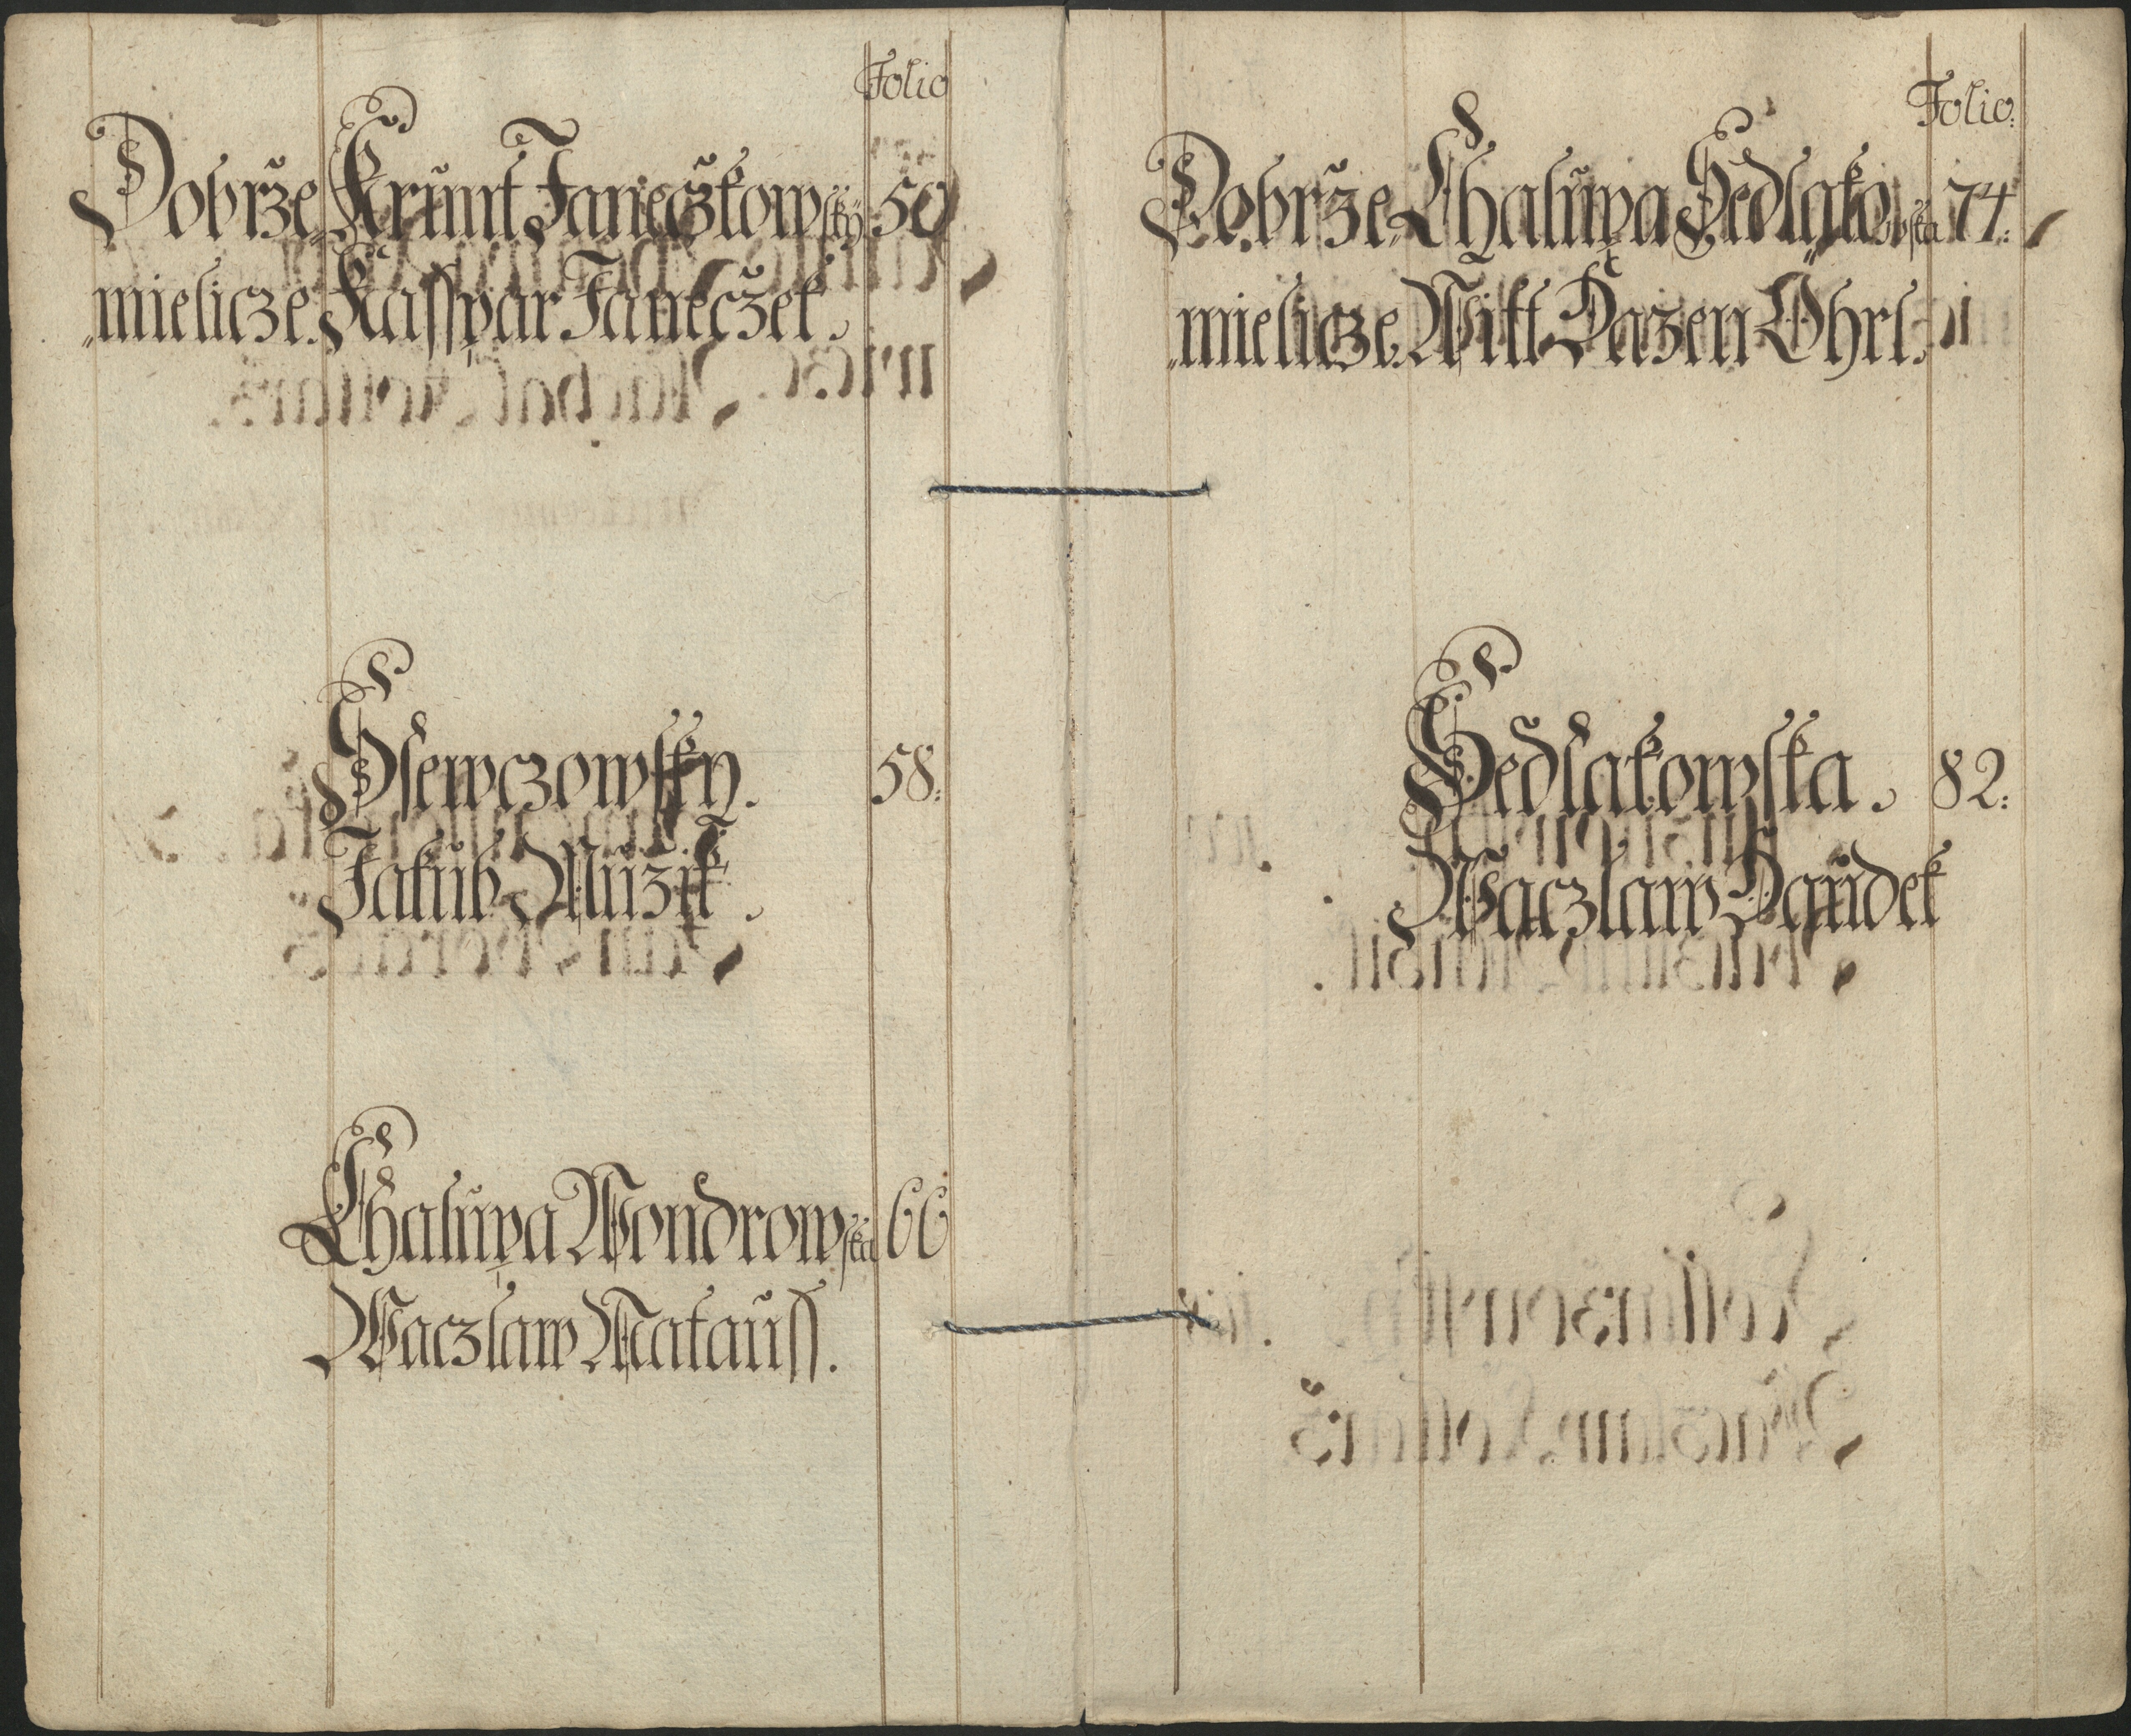 Folio
Dobrže„ Krunt Janeczkowsky 50
„mielicze. Kasspar Janeczek.
Ssewczowsky. 58:
Jakub Muzik.
Chalupa Wondrowska 66
Waczlaw Matauss.
Folio:
Dobrže„ Chalupa Sedlakowska 74:
„mielicze. Witt
Sedlakowska. 82:
Waczlaw Daudek